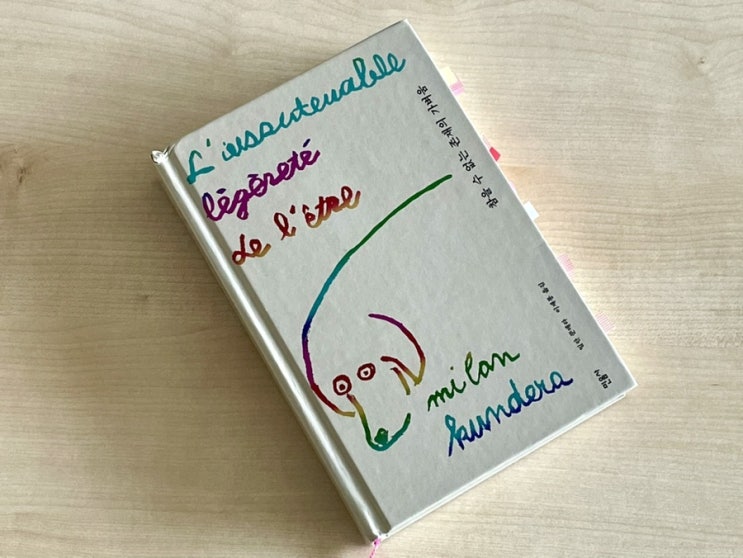 L'insoutenable
légèreté
de l'être
milan
kundera
참을 수 없는 존재의 가벼움
밀란 쿤데라 이재룡 옮김
민음사